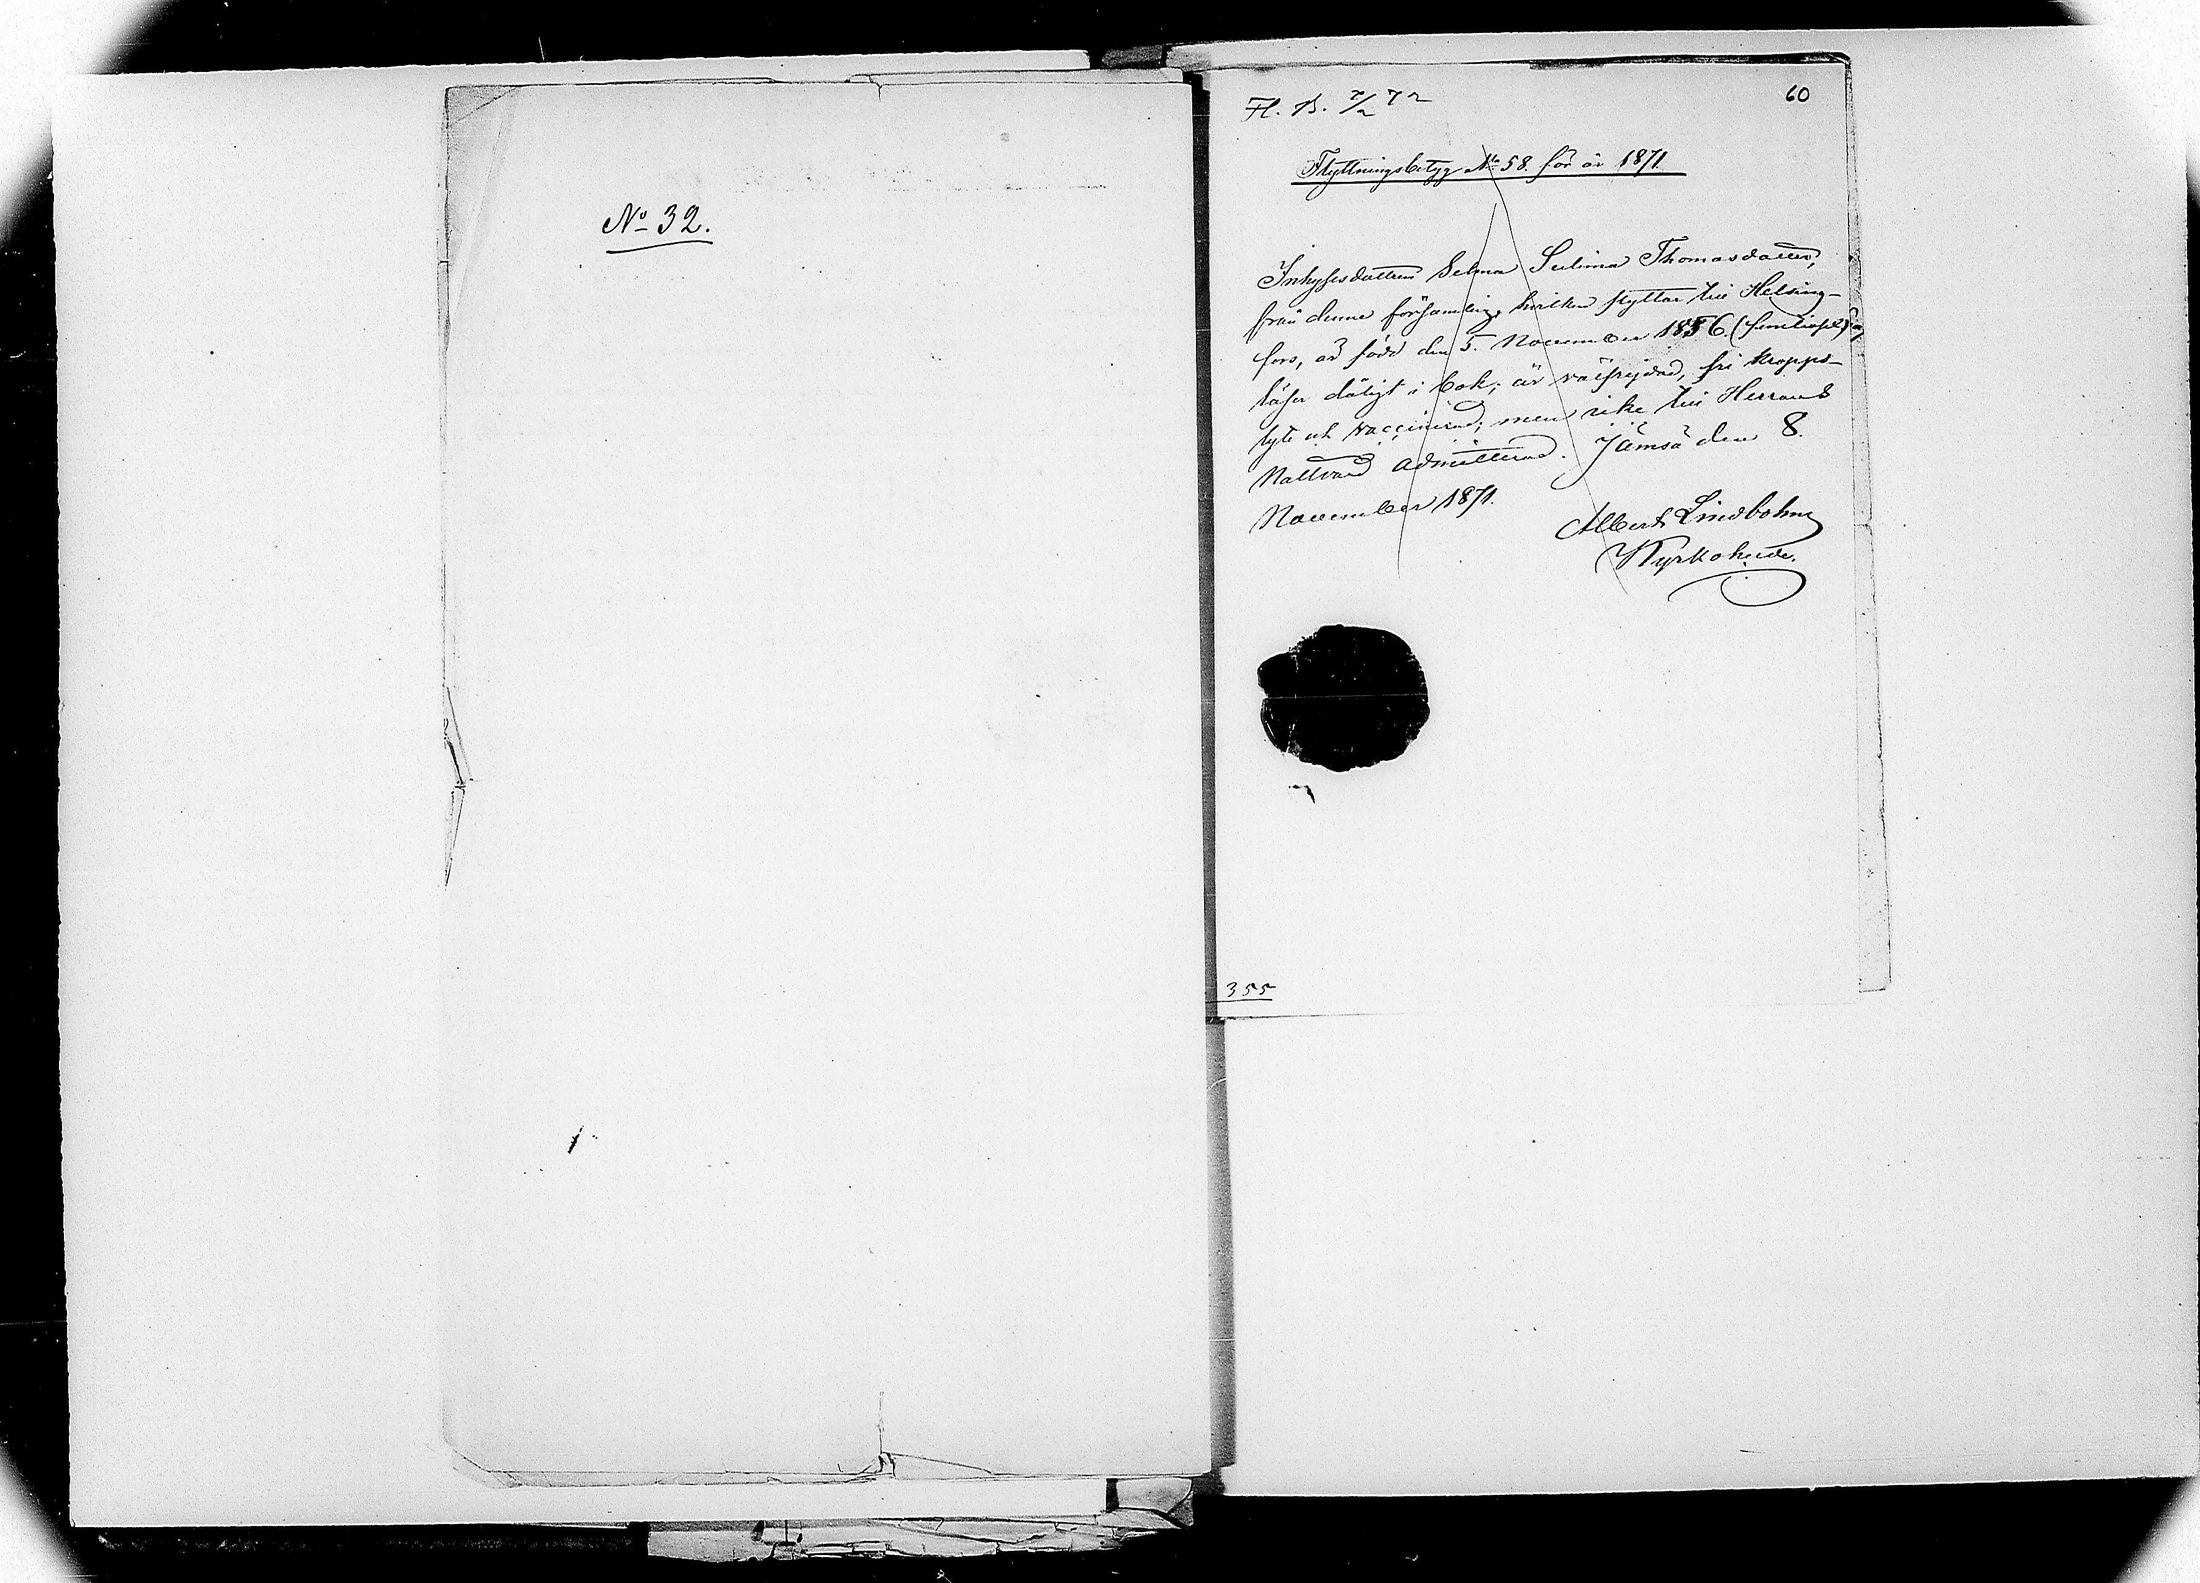 No 32.
Fl. B. 7/2 72
60
Flyttningsbetyg No 58. för år 1871.
Inhysesdottren Selma Sulima Thomasdotter,
från denna församling, hvilken flyttar till Helsing-
fors, är född den 5. November 1856. (femtiosex)
läser dåligt i bok; är välfrejdad, fri kropps-
lyte och vaccinerad; men icke till Herrans
Nattvard admitterad. Jämsä den 8.
November 1871.
Albert Lindbohm
Kyrkoherde.
355